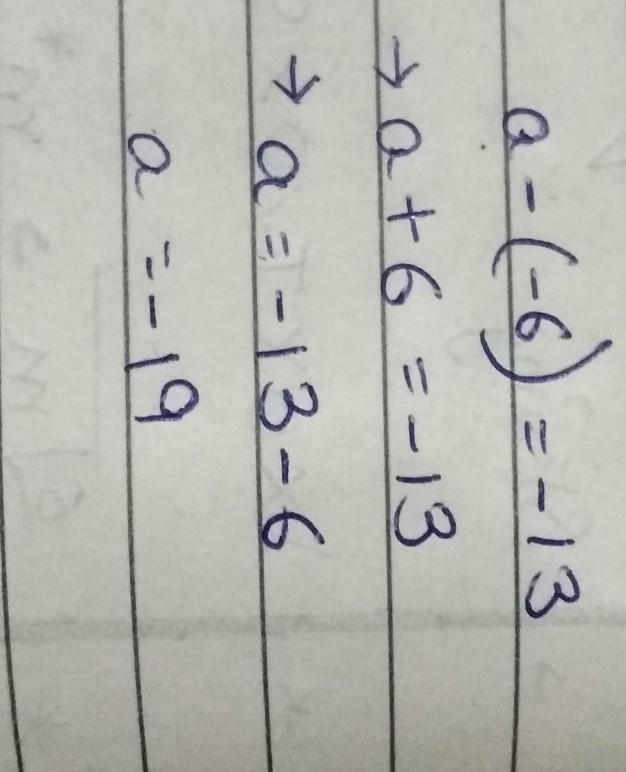 a - (-6) = -13
→ a + 6 = -13
→ a = -13 - 6
a = -19